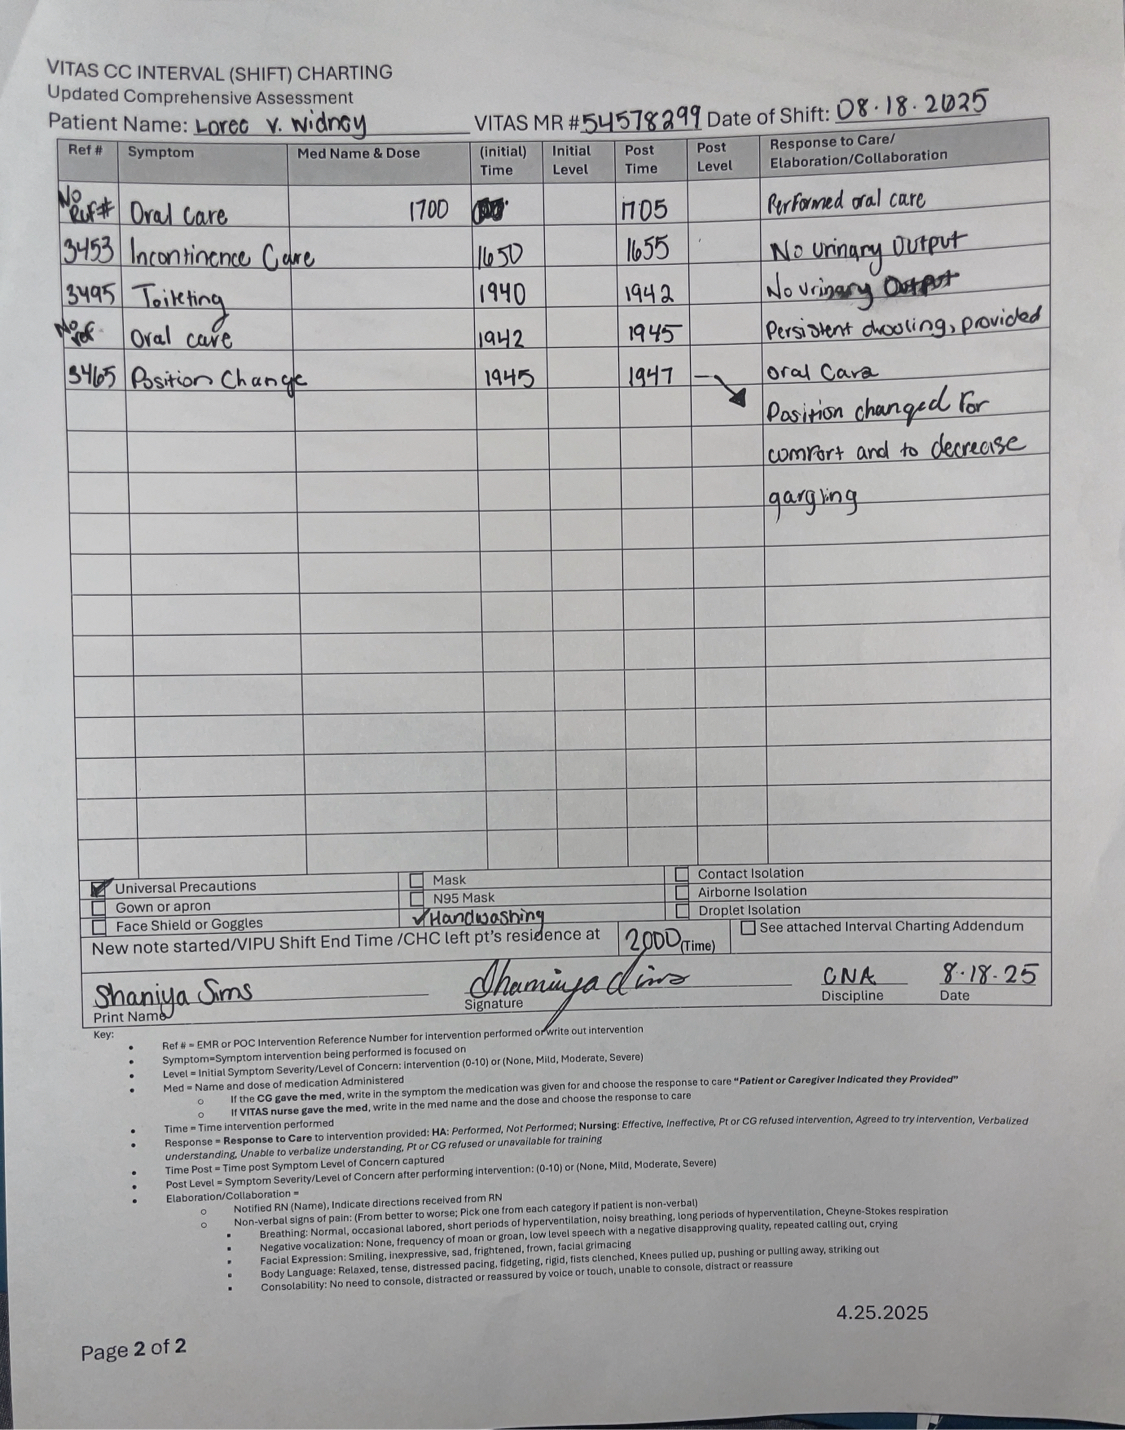 VITAS CC INTERVAL (SHIFT) CHARTING
Updated Comprehensive Assessment
Patient Name: Loreo V. Widnoy VITAS MR # 54578299 Date of Shift: 08.18.2025
Ref # Symptom Med Name & Dose (initial) Time Initial Level Post Time Post Level Response to Care/ Elaboration/Collaboration
No Ref# Oral care 1700 1705 Performed oral care
3453 Incontinence Care 1650 1655 No urinary output
3495 Toileting 1940 1942 No urinary output
No ref Oral care 1942 1945 Persistent drooling, provided
3465 Position Change 1945 1947 oral care
Position changed for
comfort and to decrease
gargling
Universal Precautions Mask Contact Isolation
Gown or apron N95 Mask Airborne Isolation
Face Shield or Goggles ✓Handwashing Droplet Isolation
New note started/VIPU Shift End Time /CHC left pt's residence at 2000 (Time) See attached Interval Charting Addendum
Shaniya Sims Shaniya Sims CNA 8.18.25
Print Name Signature Discipline Date
Key:
• Ref # = EMR or POC Intervention Reference Number for intervention performed or write out intervention
• Symptom=Symptom intervention being performed is focused on
• Level = Initial Symptom Severity/Level of Concern: intervention (0-10) or (None, Mild, Moderate, Severe)
• Med = Name and dose of medication Administered
o If the CG gave the med, write in the symptom the medication was given for and choose the response to care "Patient or Caregiver Indicated they Provided"
o If VITAS nurse gave the med, write in the med name and the dose and choose the response to care
• Time = Time intervention performed
• Response = Response to Care to intervention provided: HA: Performed, Not Performed; Nursing: Effective, Ineffective, Pt or CG refused intervention, Agreed to try intervention, Verbalized
understanding, Unable to verbalize understanding, Pt or CG refused or unavailable for training
• Time Post = Time post Symptom Level of Concern captured
• Post Level = Symptom Severity/Level of Concern after performing intervention: (0-10) or (None, Mild, Moderate, Severe)
• Elaboration/Collaboration =
o Notified RN (Name), Indicate directions received from RN
o Non-verbal signs of pain: (From better to worse; Pick one from each category if patient is non-verbal)
▪ Breathing: Normal, occasional labored, short periods of hyperventilation, noisy breathing, long periods of hyperventilation, Cheyne-Stokes respiration
▪ Negative vocalization: None, frequency of moan or groan, low level speech with a negative disapproving quality, repeated calling out, crying
▪ Facial Expression: Smiling, inexpressive, sad, frightened, frown, facial grimacing
▪ Body Language: Relaxed, tense, distressed pacing, fidgeting, rigid, fists clenched, Knees pulled up, pushing or pulling away, striking out
▪ Consolability: No need to console, distracted or reassured by voice or touch, unable to console, distract or reassure
4.25.2025
Page 2 of 2